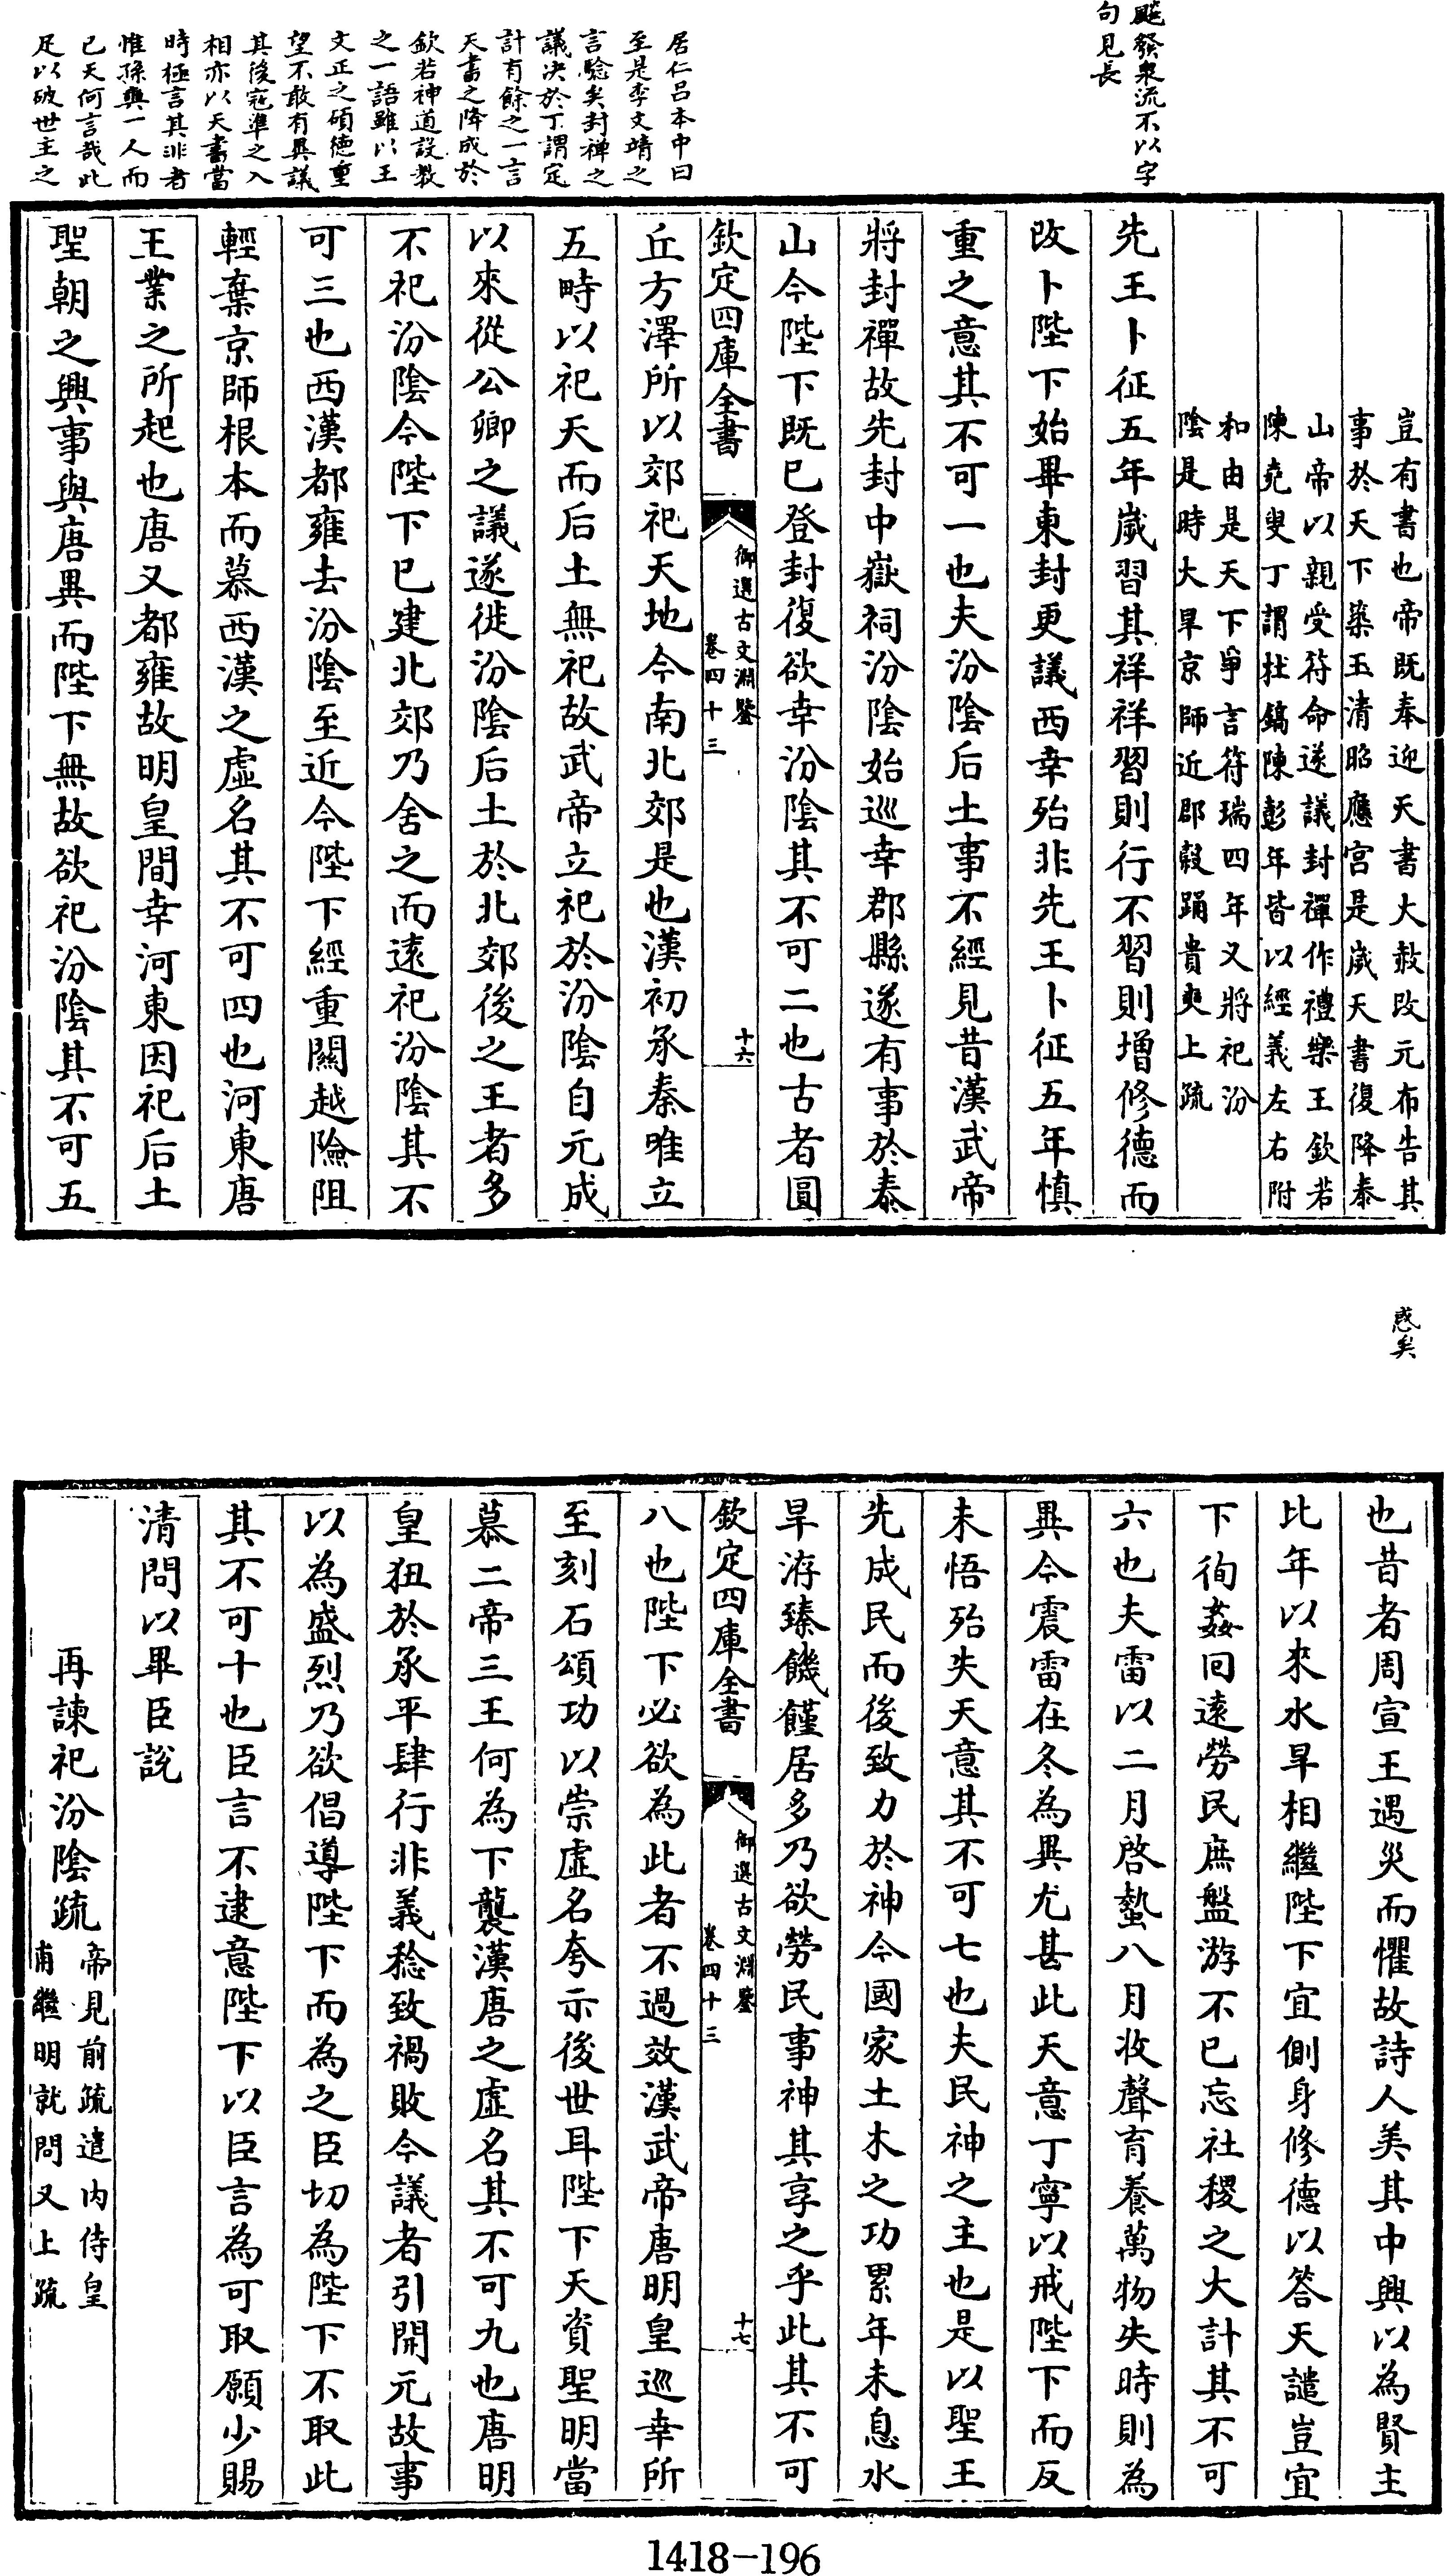 飈發泉流不以字
句見長
居仁呂本中曰
至是李文靖之
言驗矣封禪之
議決於丁謂定
計有餘之一言
天書之降成於
欽若神道設教
之一語雖以王
文正之碩德重
望不敢有異議
其後寇準之入
相亦以天書當
時極言其非者
惟孫奭一人而
已天何言哉此
足以破世主之
豈有書也帝既奉迎天書大赦改元布告其
事於天下築玉清昭應宮是歲天書復降泰
山帝以親受符命遂議封禪作禮樂王欽若
陳堯叟丁謂杜鎬陳彭年皆以經義左右附
和由是天下爭言符瑞四年又將祀汾
陰是時大旱京師近郡穀踊貴奭上疏
先王卜征五年歲習其祥祥習則行不習則增修德而
改卜陛下始畢東封更議西幸殆非先王卜征五年慎
重之意其不可一也夫汾陰后土事不經見昔漢武帝
將封禪故先封中嶽祠汾陰始巡幸郡縣遂有事於泰
山今陛下既已登封復欲幸汾陰其不可二也古者圓
欽定四庫全書
御選古文淵鑒
卷四十三
十六
丘方澤所以郊祀天地今南北郊是也漢初承秦唯立
五畤以祀天而后土無祀故武帝立祀於汾陰自元成
以來從公卿之議遂徙汾陰后土於北郊後之王者多
不祀汾陰今陛下已建北郊乃舍之而遠祀汾陰其不
可三也西漢都雍去汾陰至近今陛下經重關越險阻
輕棄京師根本而慕西漢之虛名其不可四也河東唐
王業之所起也唐又都雍故明皇間幸河東因祀后土
聖朝之興事與唐異而陛下無故欲祀汾陰其不可五
惑矣
也昔者周宣王遇災而懼故詩人美其中興以為賢主
比年以來水旱相繼陛下宜側身修德以答天譴豈宜
下徇姦回遠勞民庶盤游不已忘社稷之大計其不可
六也夫雷以二月啓蟄八月收聲育養萬物失時則為
異今震雷在冬為異尤甚此天意丁寧以戒陛下而反
未悟殆失天意其不可七也夫民神之主也是以聖王
先成民而後致力於神今國家土木之功累年未息水
旱洊臻饑饉居多乃欲勞民事神其享之乎此其不可
欽定四庫全書
御選古文淵鑒
卷四十三
十七
八也陛下必欲為此者不過效漢武帝唐明皇巡幸所
至刻石頌功以崇虛名夸示後世耳陛下天資聖明當
慕二帝三王何為下襲漢唐之虛名其不可九也唐明
皇狃於承平肆行非義稔致禍敗今議者引開元故事
以為盛烈乃欲倡導陛下而為之臣切為陛下不取此
其不可十也臣言不逮意陛下以臣言為可取願少賜
清問以畢臣說
再諫祀汾陰疏
帝見前疏遣內侍皇
甫繼明就問又上疏
1418-196